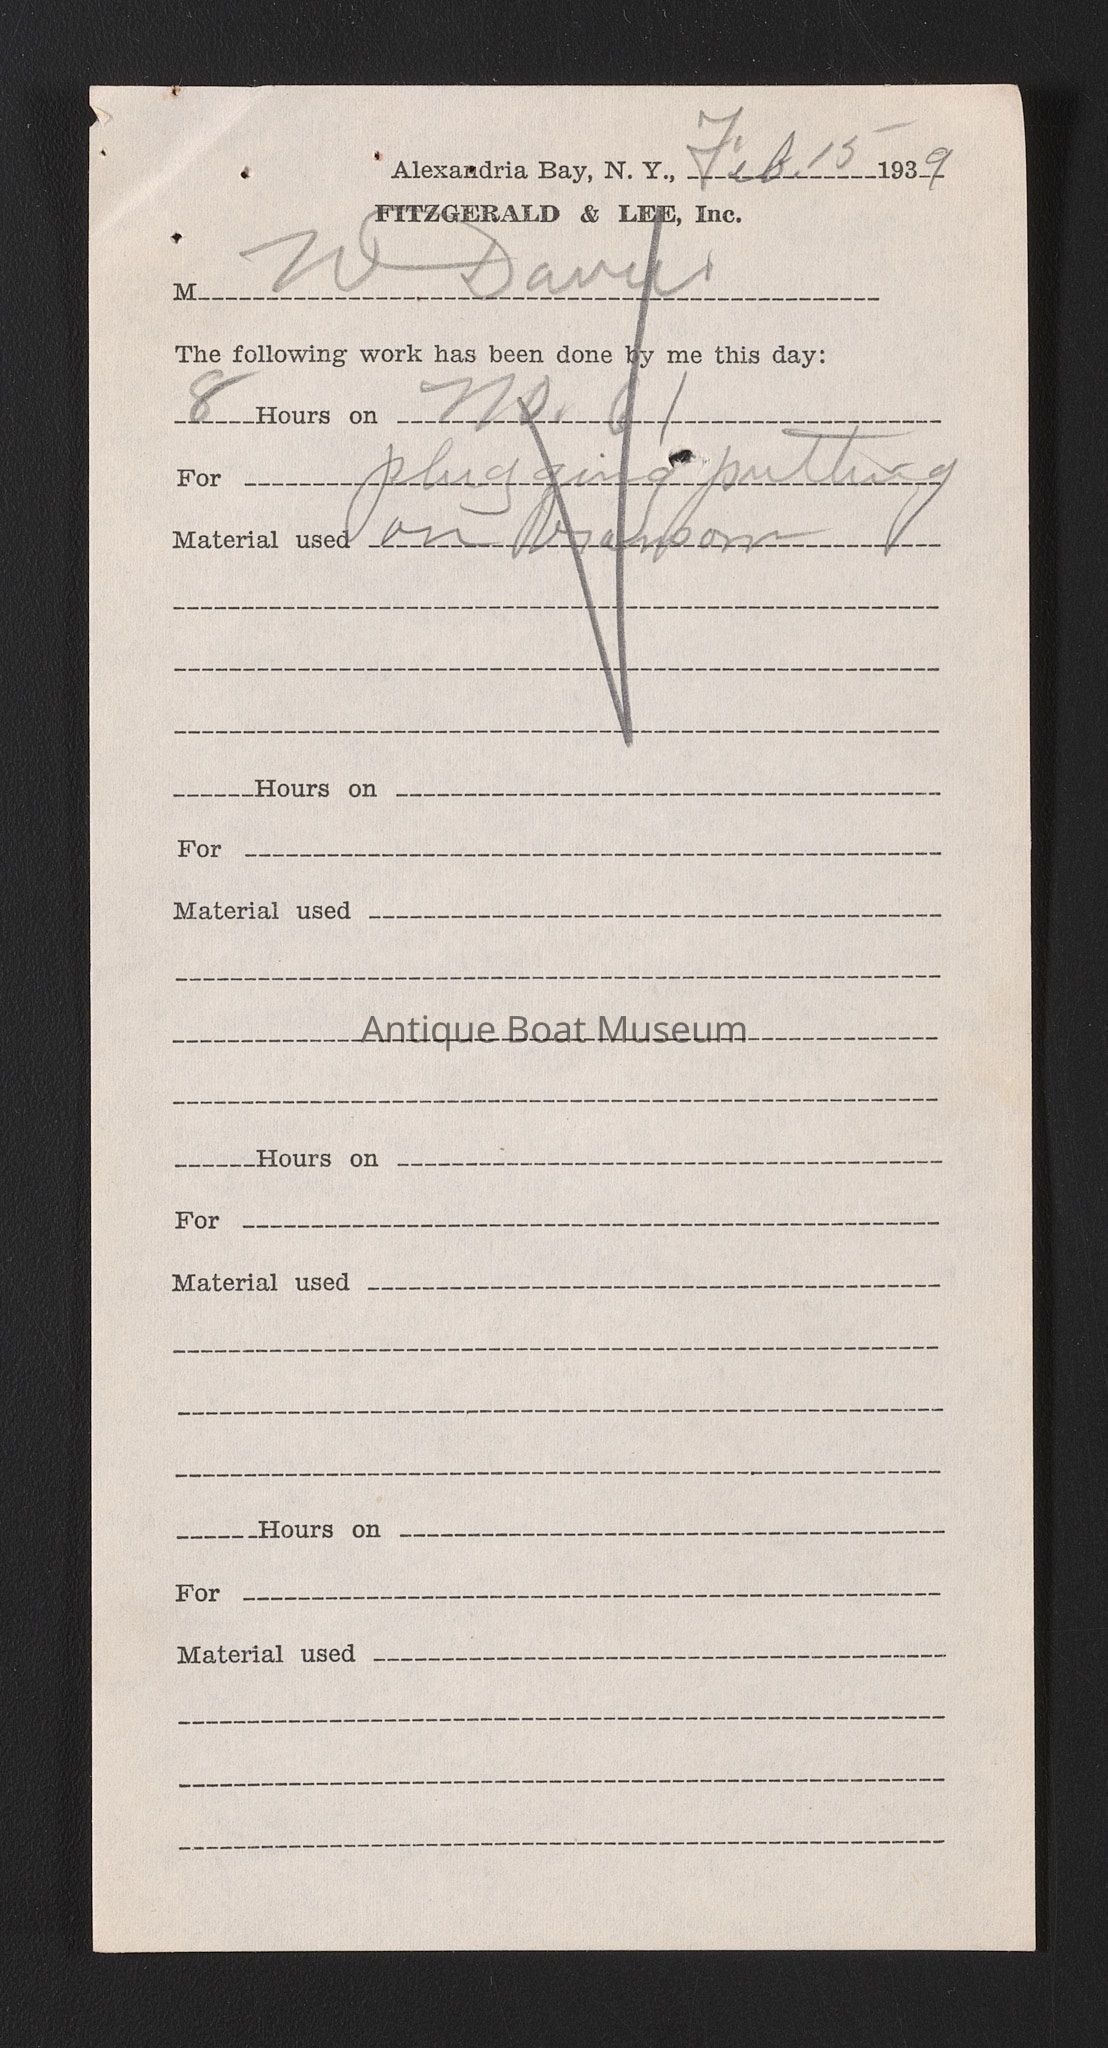 Alexandria Bay, N. Y., Feb. 15 1939
FITZGERALD & LEE, Inc.
M W Davis
The following work has been done by me this day:
8 Hours on No. 61
For plugging putting
Material used on transom
Hours on
For
Material used
Antique Boat Museum
Hours on
For
Material used
Hours on
For
Material used